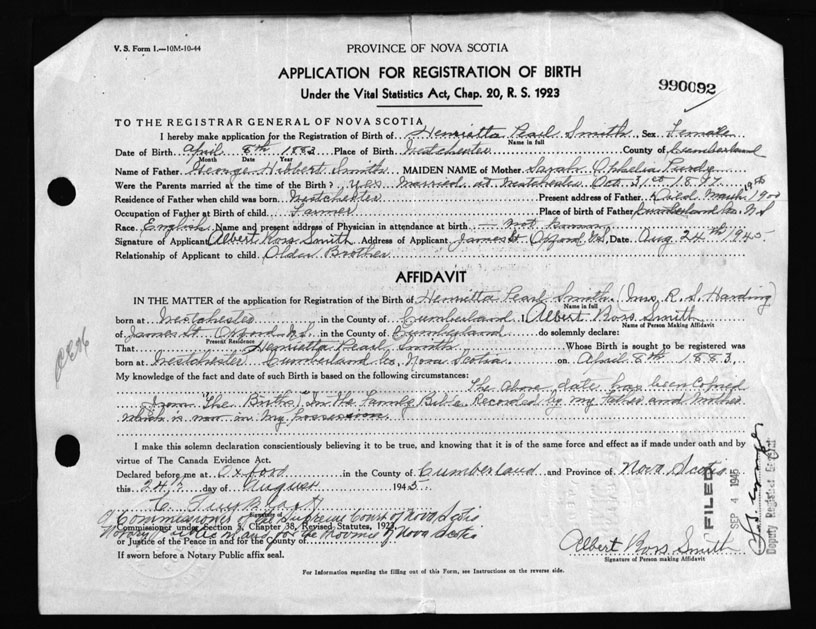 V. S. Form 1.—10M-10-44
PROVINCE OF NOVA SCOTIA
APPLICATION FOR REGISTRATION OF BIRTH
990092
Under the Vital Statistics Act, Chap. 20, R. S. 1923
TO THE REGISTRAR GENERAL OF NOVA SCOTIA
I hereby make application for the Registration of Birth of Henrietta Pearl Smith Sex Female
Name in full
Date of Birth April 8th 1883 Place of Birth Westchester County of Cumberland
Month Date Year
Name of Father George Hibbert Smith MAIDEN NAME of Mother Sarah Ophelia Purdy
Were the Parents married at the time of the Birth? yes Married at Westchester Oct 31st 18
Residence of Father when child was born Westchester Present address of Father Died March
Occupation of Father at Birth of child Farmer Place of birth of Father Cumberland Co. N.S
Race English Name and present address of Physician in attendance at birth — not known
Signature of Applicant Albert Ross Smith Address of Applicant James St Oxford N.S. Date Aug 24th 1945
Relationship of Applicant to child Older Brother
AFFIDAVIT
IN THE MATTER of the application for Registration of the Birth of Henrietta Pearl Smith (Mrs R. S. Harding)
Name in full
born at Westchester in the County of Cumberland I Albert Ross Smith
Name of Person Making Affidavit
of James St Oxford N.S. in the County of Cumberland do solemnly declare:
Present Residence
That Henrietta Pearl Smith Whose Birth is sought to be registered was
born at Westchester Cumberland Co, Nova Scotia on April 8th 1883.
My knowledge of the fact and date of such Birth is based on the following circumstances:
The Above date has been Copied
from "The Births" In the Family Bible. Recorded by my Father and Mother
which is now in my possession.
I make this solemn declaration conscientiously believing it to be true, and knowing that it is of the same force and effect as if made under oath and by
virtue of The Canada Evidence Act.
Declared before me at Oxford in the County of Cumberland and Province of Nova Scotia
this 24th day of August 1945.
Signature of
A Commissioner of the Supreme Court of Nova Scotia
Commissioner under Section 5, Chapter 38, Revised Statutes, 1923
Notary Public in and for the Province of Nova Scotia
or Justice of the Peace in and for the County of
If sworn before a Notary Public affix seal.
Albert Ross Smith
Signature of Person making Affidavit
FILED SEP 4 1945
Deputy Registrar General
For Information regarding the filling out of this Form, see Instructions on the reverse side.